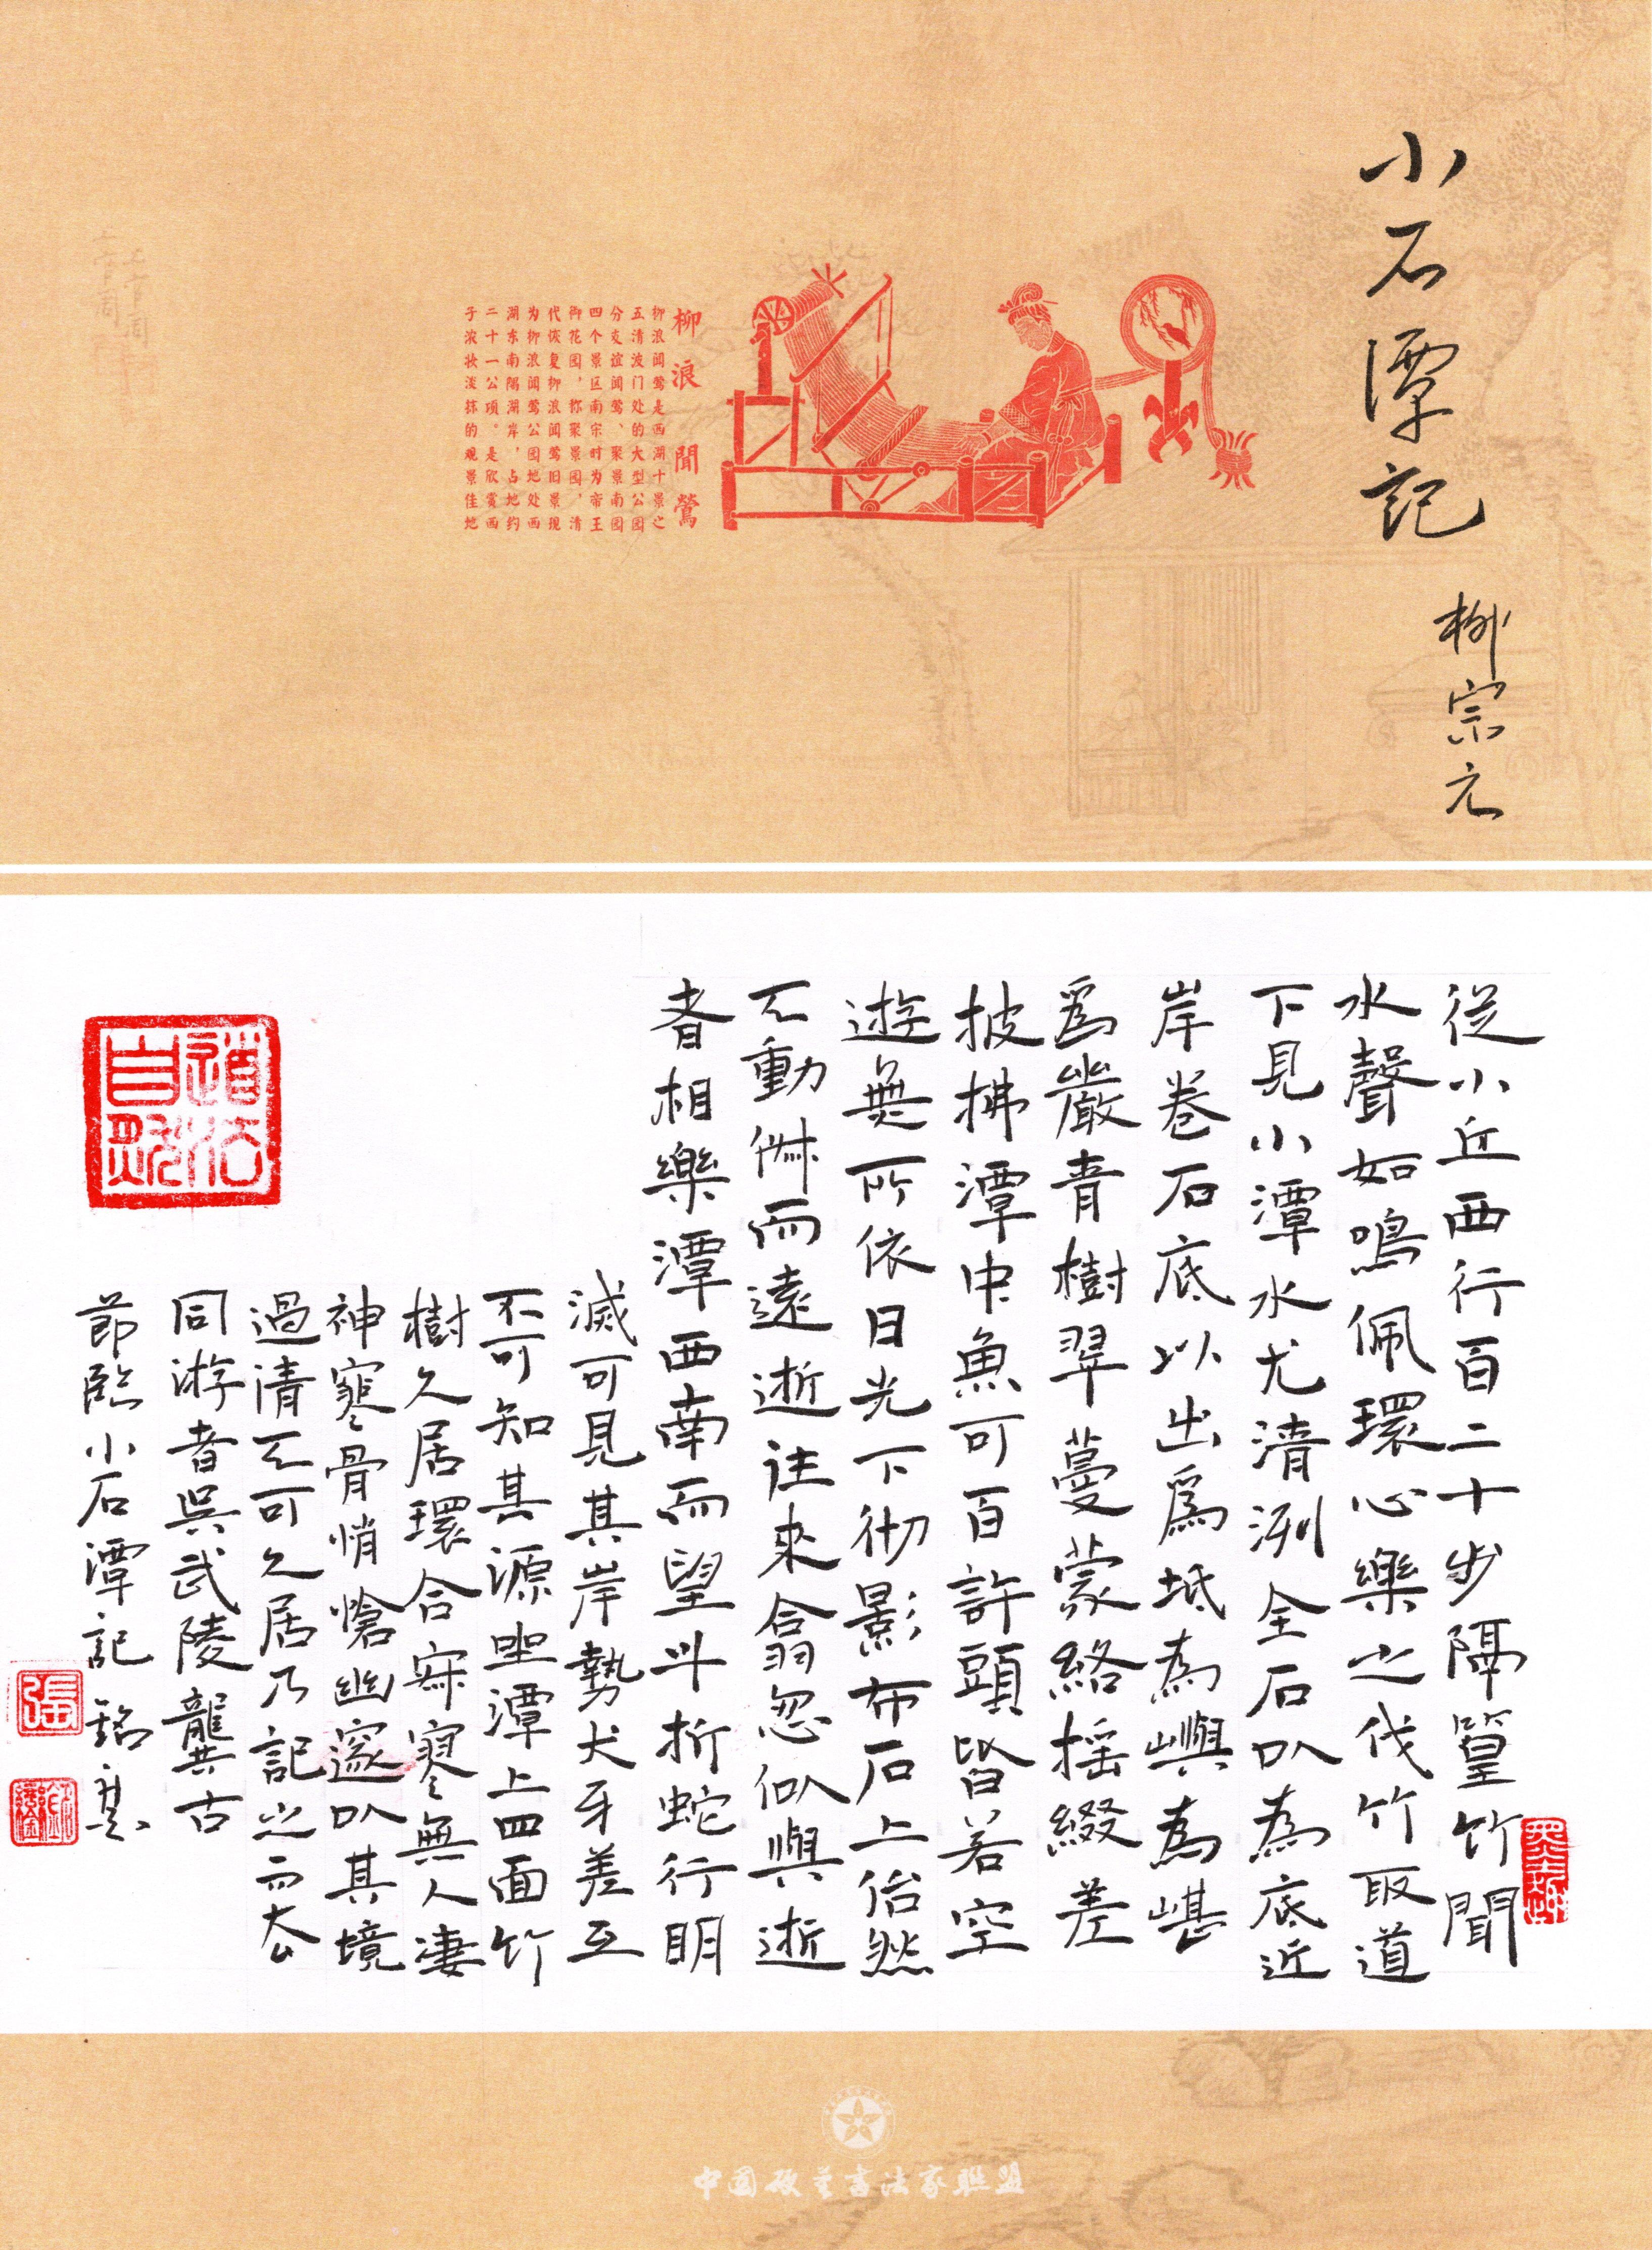 小石潭記
柳宗元
柳浪聞鶯
柳浪闻莺是西湖十景之
五清波门处的大型公园
分友谊闻莺、聚景南园
四个景区南宋时为帝王
御花园，称聚景园，清
代恢复柳浪闻莺旧景现
为柳浪闻莺公园地处西
湖东南隅湖岸，占地约
二十一公顷。是欣赏西
子浓妆淡抹的观景佳地
從小丘西行百二十步隔篁竹聞
水聲如鳴佩環心樂之伐竹取道
下見小潭水尤清冽全石以為底近
岸卷石底以出爲坻為嶼為嵁
爲巖青樹翠蔓蒙絡搖綴差
披拂潭中魚可百許頭皆若空
遊無所依日光下彻影布石上佁然
不動俶而遠逝往來翕忽似與逝
者相樂潭西南而望斗折蛇行明
滅可見其岸勢犬牙差互
不可知其源坐潭上四面竹
樹久居環合寂寥無人凄
神寒骨悄愴幽邃以其境
過清不可久居乃記之而去
同游者吳武陵龔古
節臨小石潭記 銘
道法自然
張
中国硬笔书法家联盟